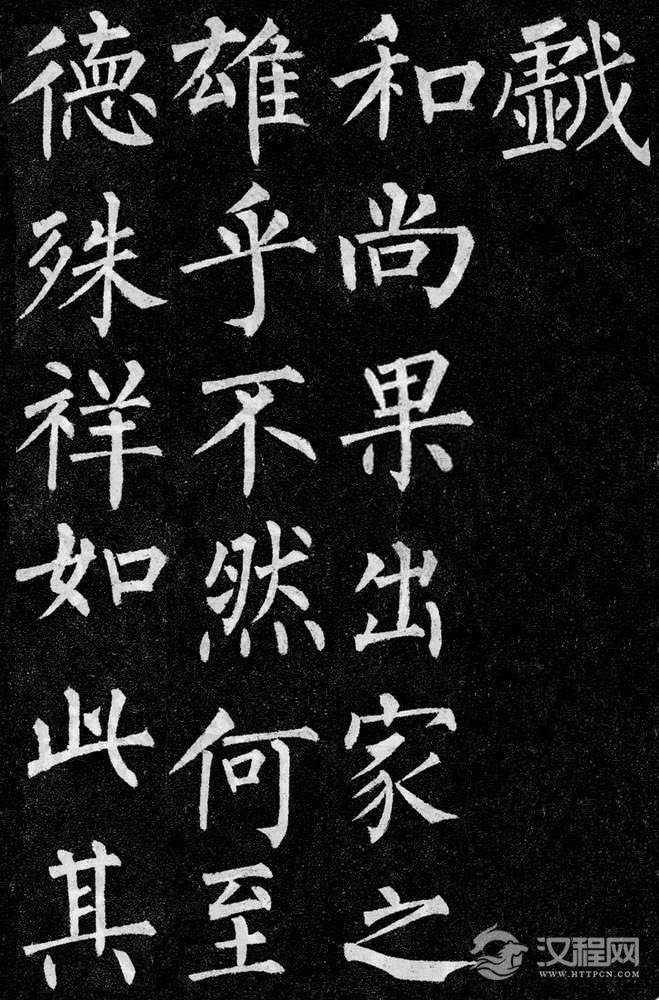 戱
和尚果出家之
雄乎不然何至
德殊祥如此其
汉程网
WWW.HTTPCN.COM